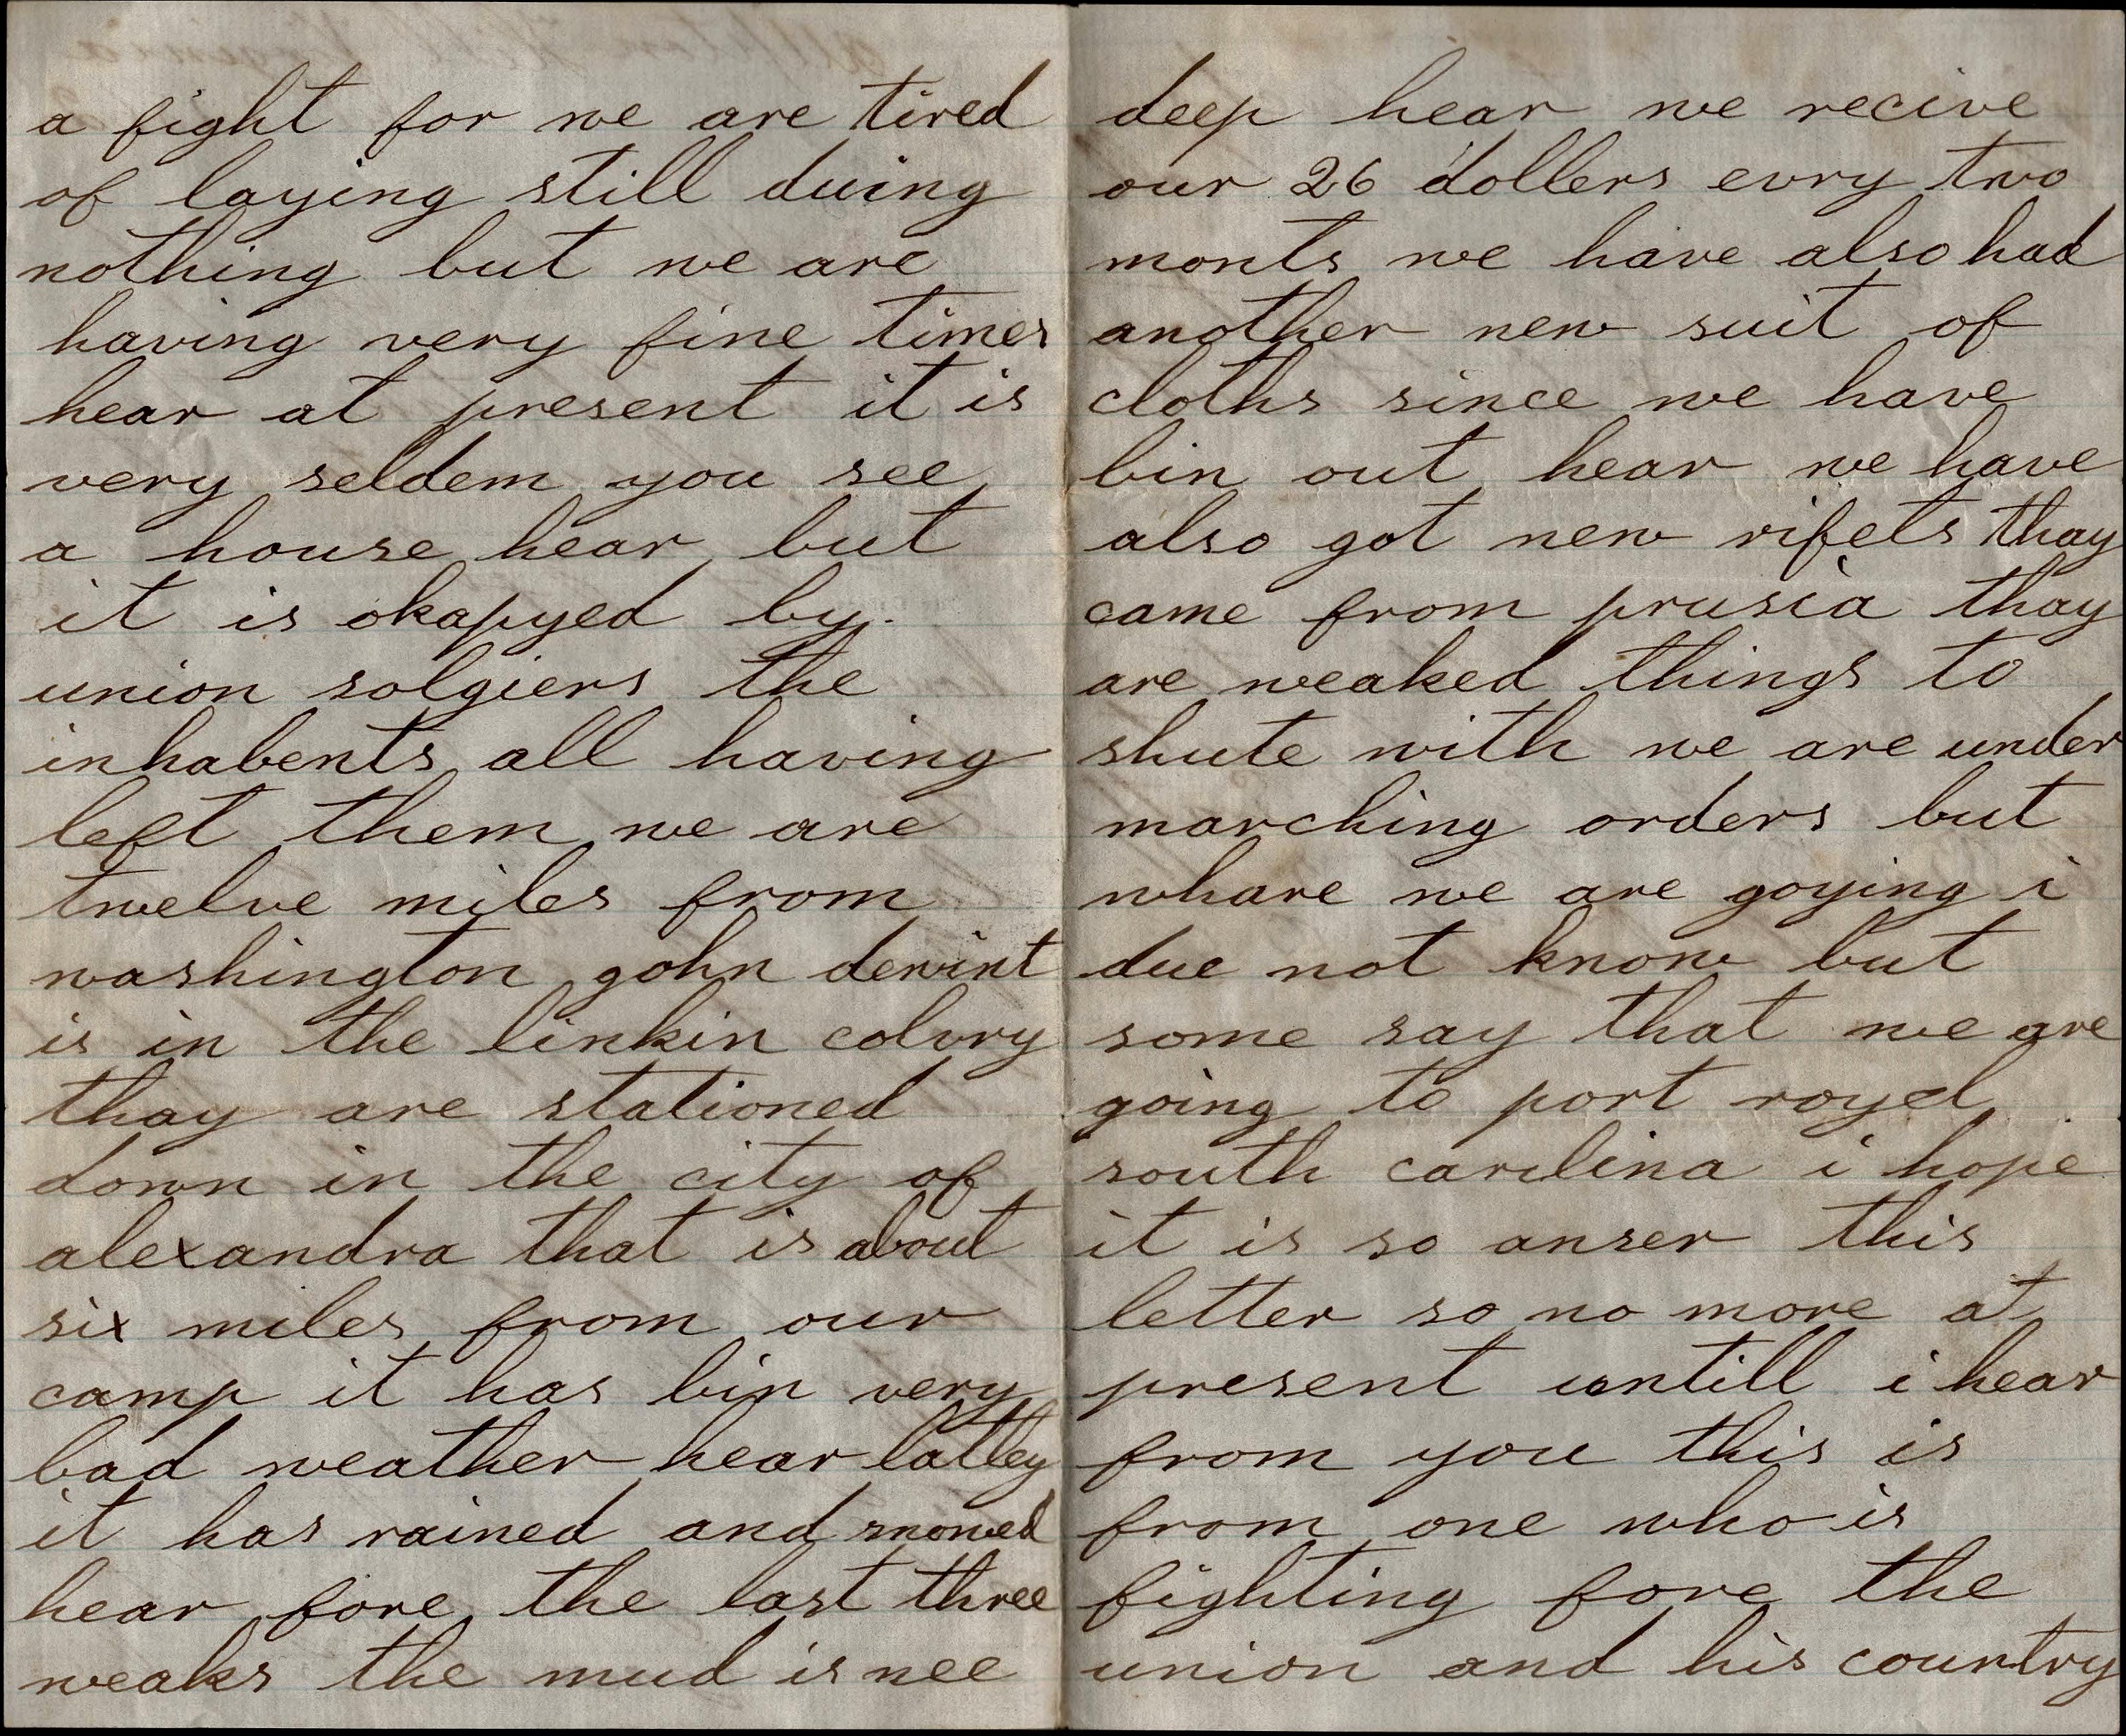 a fight for we are tired
of laying still duing
nothing but we are
having very fine times
hear at present it is
very seldem you see
a house hear but
it is okapyed by
union solgiers the
inhabents all having
left them we are
twelve miles from
washington gohn dewint
is in the linkin colvry
thay are stationed
down in the city of
alexandra that is about
six miles from our
camp it has bin very
bad weather hear lattey
it has rained and snowed
hear fore the last three
weaks the mud is nee
deep hear we recive
our 26 dollers evry two
monts we have also had
another new suit of
cloths since we have
bin out hear we have
also got new rifels thay
came from prusia thay
are weaked things to
shute with we are under
marching orders but
whare we are goying i
due not know but
some say that we are
going to port royel
south carilina i hope
it is so anser this
letter so no more at
present untill i hear
from you this is
from one who is
fighting fore the
union and his country